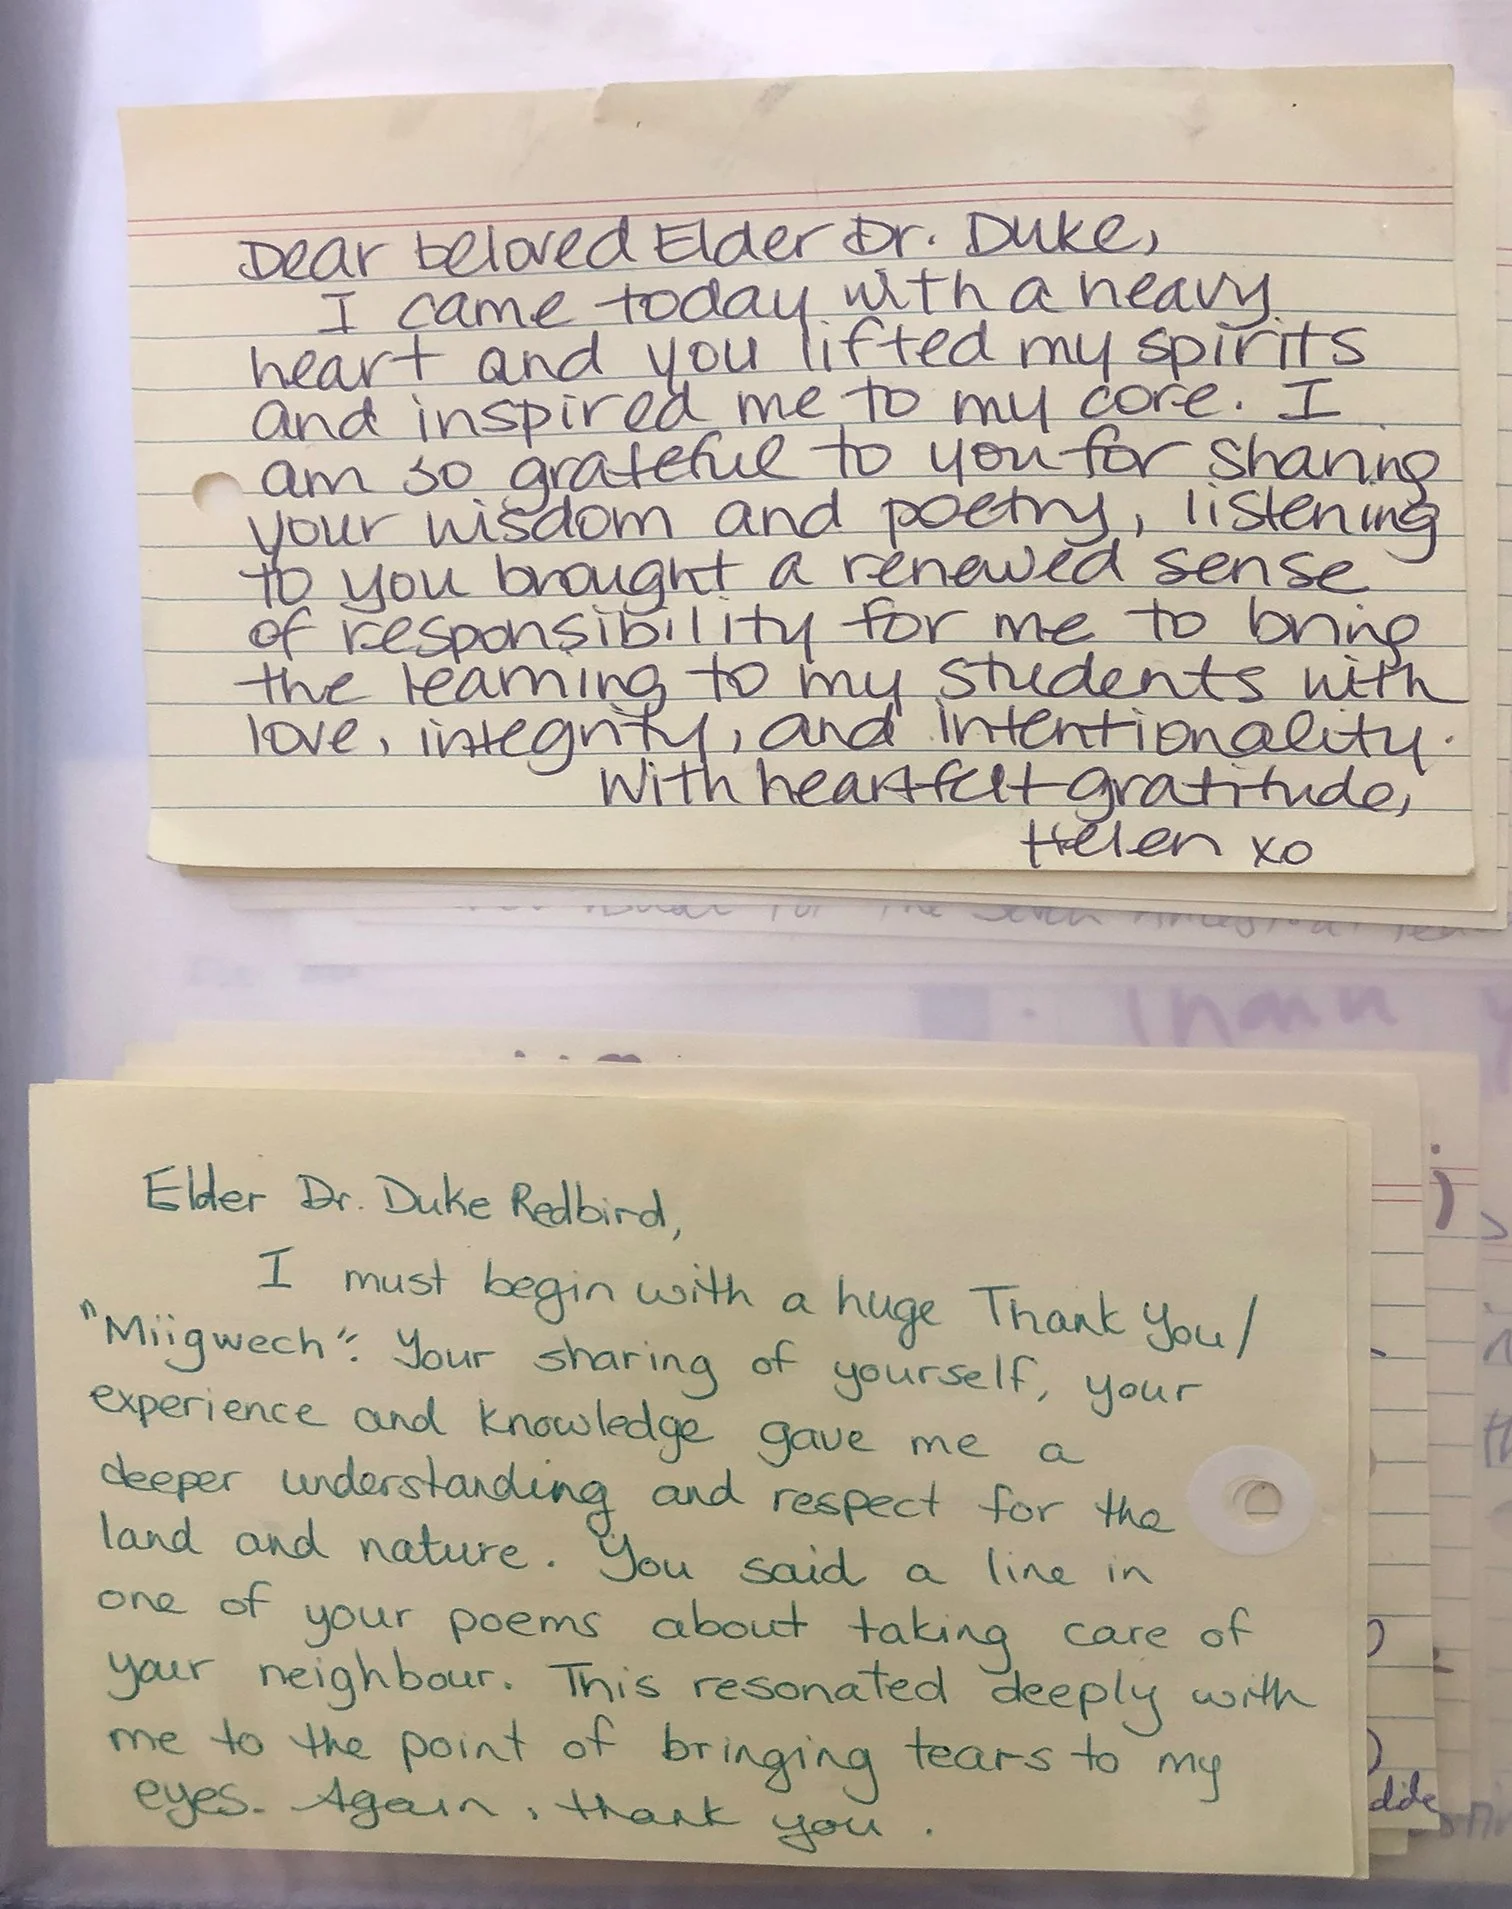 Dear beloved Elder Dr. Duke,
I came today with a heavy
heart and you lifted my spirits
and inspired me to my core. I
am so grateful to you for sharing
your wisdom and poetry, listening
to you brought a renewed sense
of responsibility for me to bring
the learning to my students with
love, integrity, and intentionality.
With heartfelt gratitude,
Helen xo
for the Seven Ancestral
Thank
Elder Dr. Duke Redbird,
I must begin with a huge Thank You/
"Miigwech". Your sharing of yourself, your
experience and knowledge gave me a
deeper understanding and respect for the
land and nature. You said a line in
one of your poems about taking care of
your neighbour. This resonated deeply with
me to the point of bringing tears to my
eyes. Again, thank you.